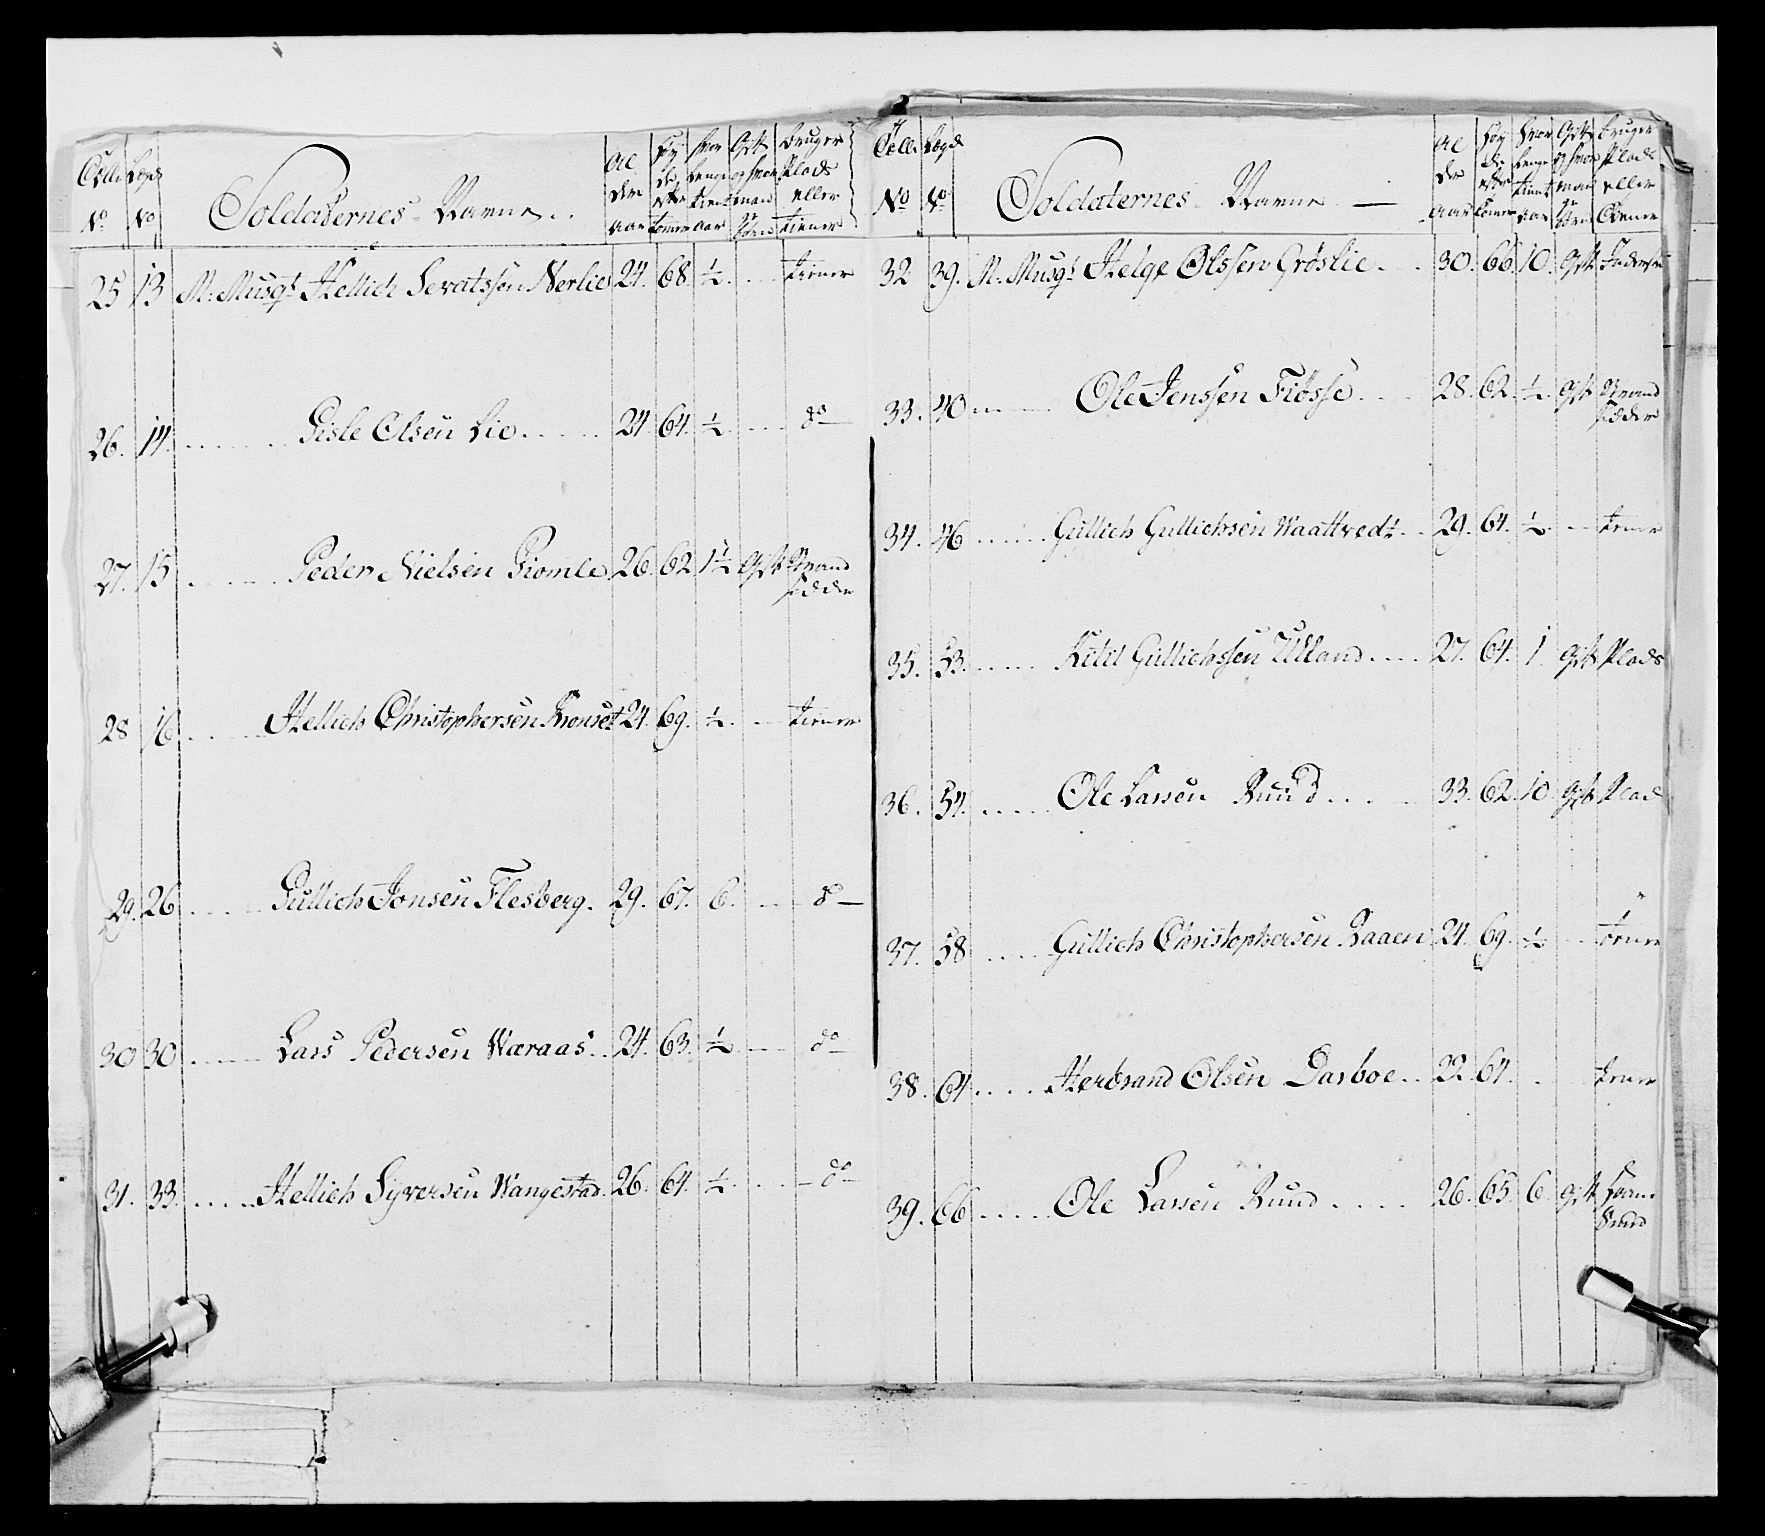 Tælle No
Lægd No
Soldaternes Navne
Al der aar
Høy de efter tommer
hvor lenge tient aar
Gift og hvor man
Bruger Plads eller tiener
25 13 N: Musqt Hellich Levatssøn Nerlie 24. 68. ½ tiener
26. 14. Gisle Olsen Lie 24. 64. ½ do
27. 15 Peder Nielsen Giomle 26. 62. 1½ Gift Strand
sidder
28 16 Hellich Christophersen Kronset 24. 69. ½ tiener
29. 26 Gullich Jonsen Flesberg. 29. 67. 6. do
30 30 Lars Pedersen Væraas 24. 63. ½ do
31. 33. Hellich Syversen Wangestad. 26. 64. ½ do
Tælle No
Lægd No
Soldaternes Navne
Al der aar
Høy de efter tommer
hvor lenge tient aar
Gift og hvor man
Bruger Plads eller tiener
32 39. N. Musqt Helge Olssen Grøslie 30. 66 10. Gift
33. 40 Ole Jenssen Fiøsse 28. 62. ½ Gift Strand
sidder
34. 46 Gullich Gullichsen Waattved 29. 64. ½ tiener
35. 53. Kitil Gullichssen Ulland 27. 64. 1 Gift Plads
36. 54. Ole Larsen Ruud 33. 62. 10 Gift Plads
37. 58 Gullich Christophersen Raaen 24. 69. ½ tiener
38. 64. Herbrand Olsen Dasboe 22. 64. tiener
39. 66 Ole Larsen Ruud 26. 65. 6. Gift